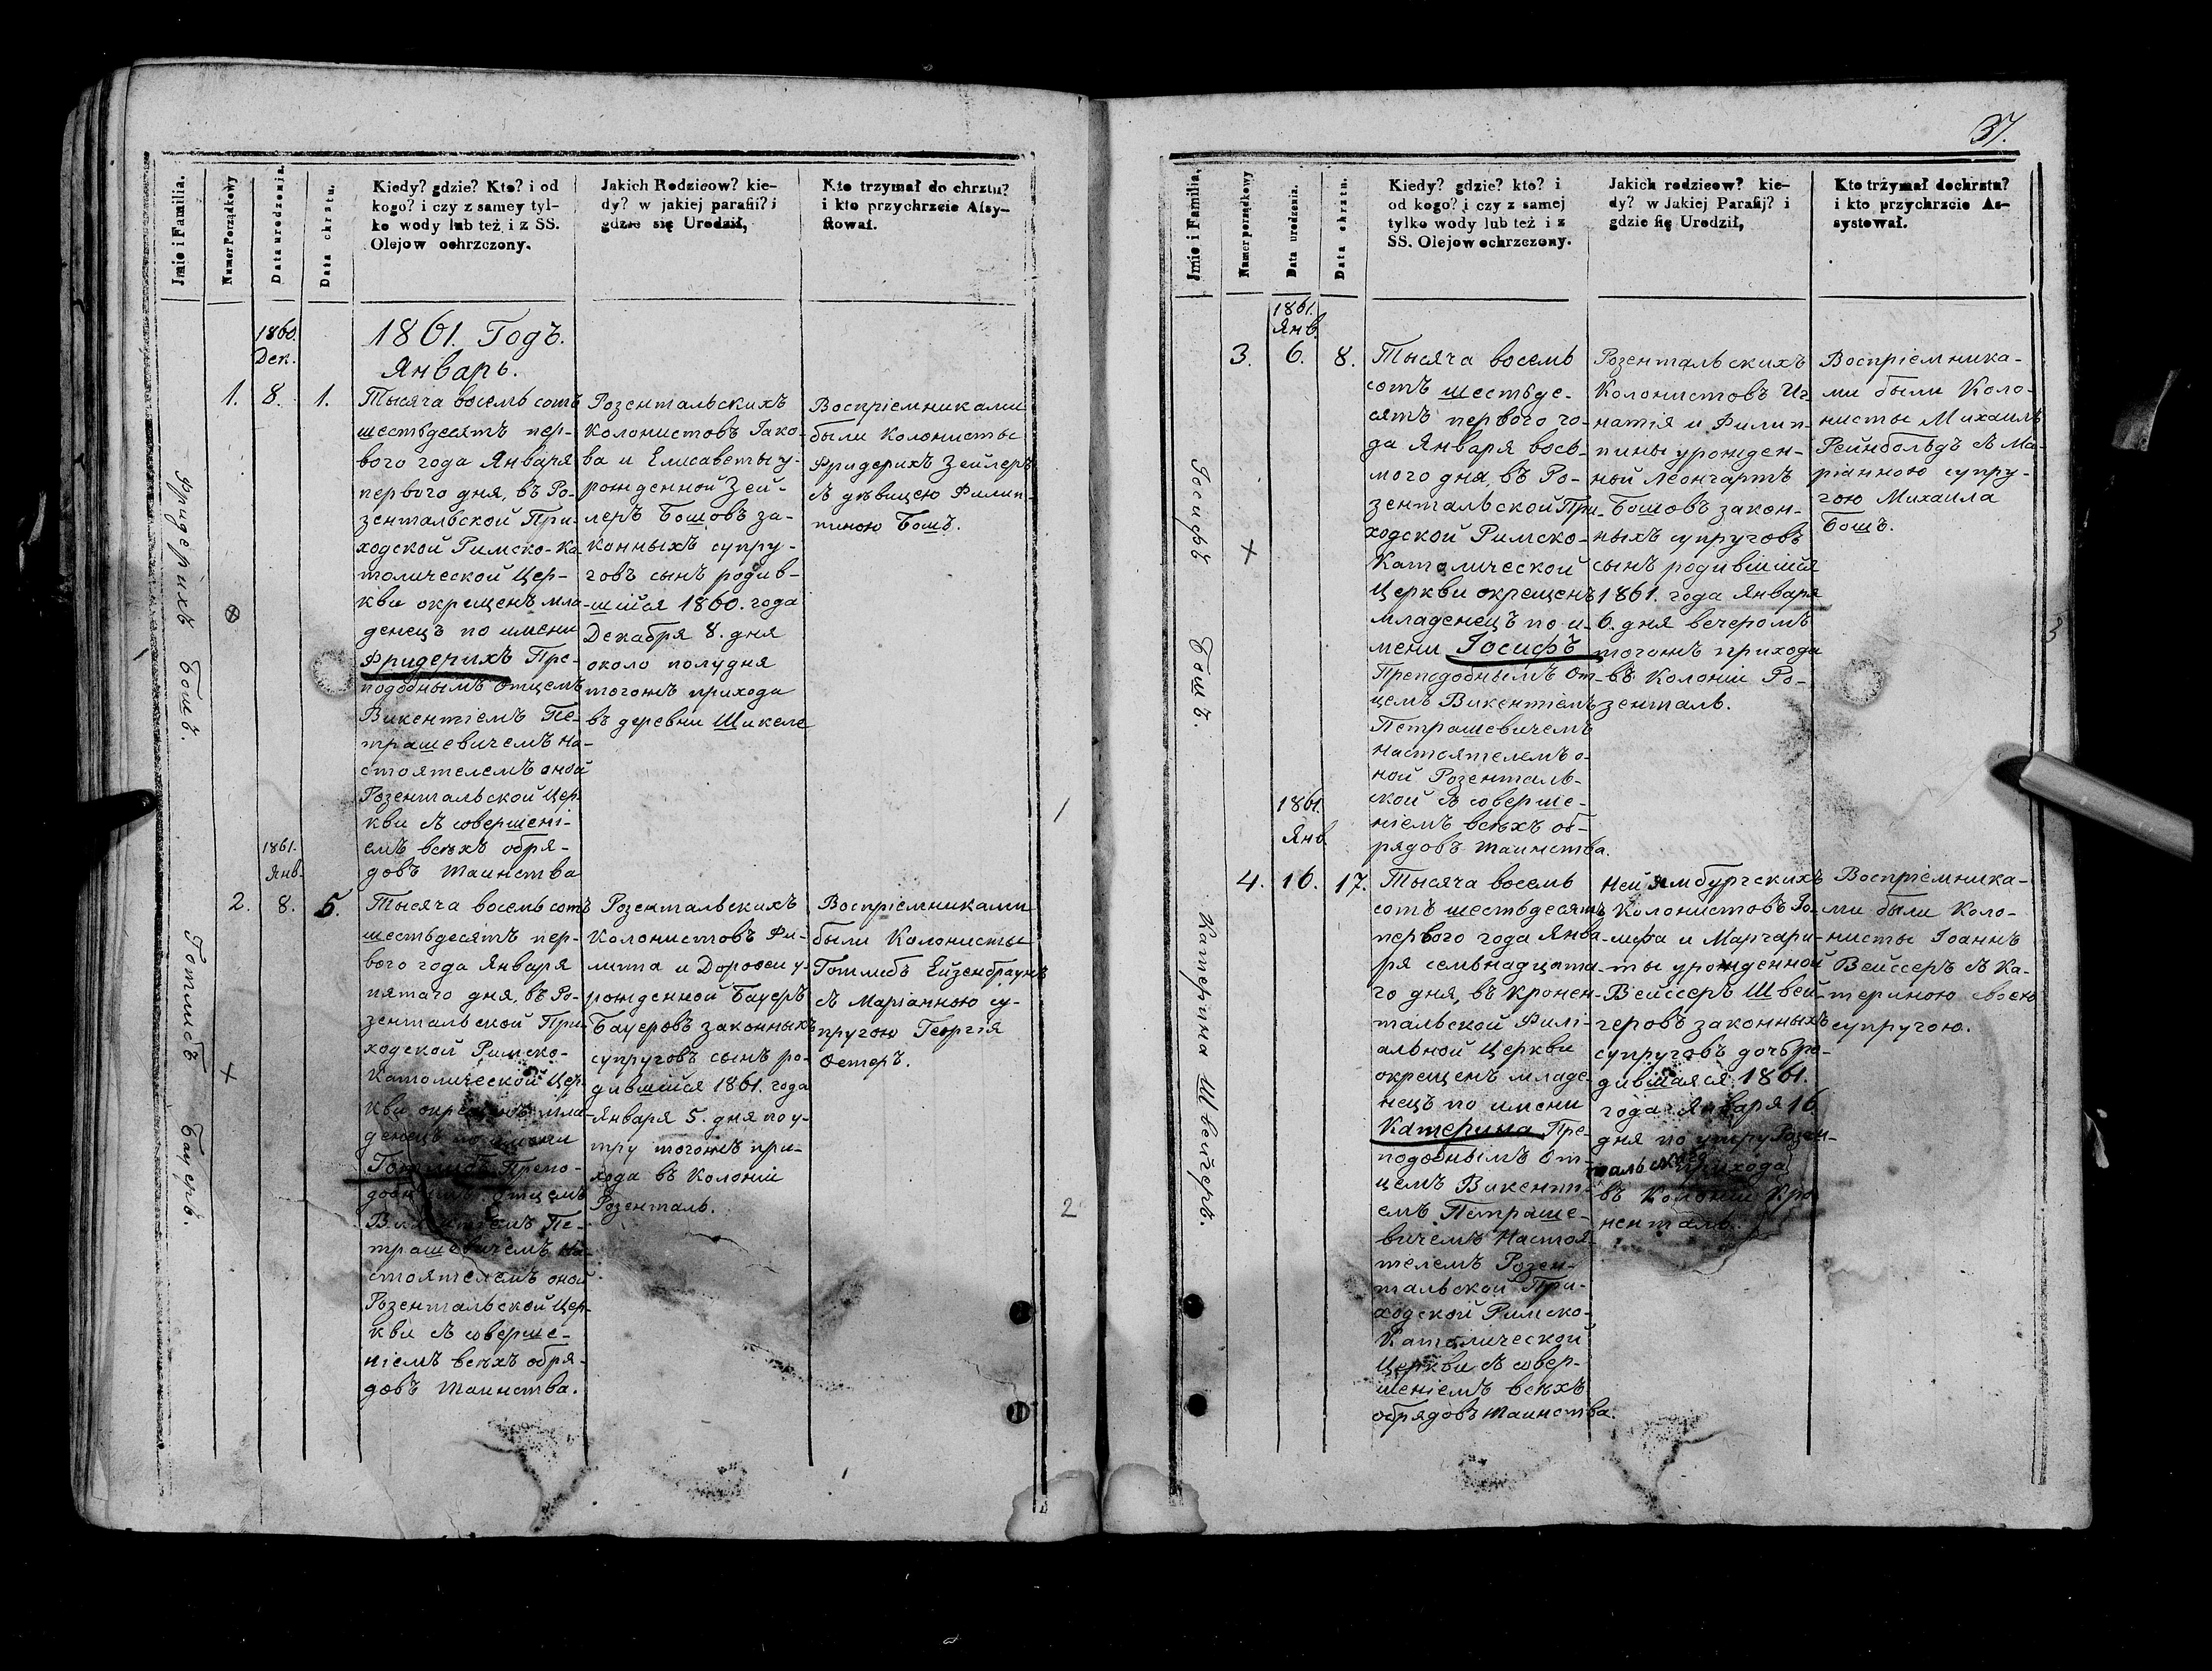 37.
Jmie i Familia.
Numer Porządkowy
Data urodzenia.
Data chrztu.
Kiedy? gdzie? Kto? i od
kogo? i czy z samey tyl-
ko wody lub też i z SS.
Olejow ochrzczony.
Jakich Rodzicow? kie-
dy? w jakiej parafii? i
gdzie się Urodził,
Kto trzymał do chrztu?
i kto przychrzcie Assy-
stował.
1860.
Дек.
1861. Годъ.
Январь.
Фридерихъ Бошъ.
1.
8.
1.
Тысяча восемь сотъ
шестьдесятъ пер-
вого года Января
первого дня, въ Ро-
зентальской При-
ходской Римско-Ка-
толической Цер-
кви окрещенъ мла-
денецъ по имени
Фридерихъ Пре-
подобнымъ Отцемъ
Викентіемъ Пе-
трашевичемъ На-
стоятелемъ оной
Розентальской Цер-
кви съ совершені-
емъ всѣхъ обря-
довъ Таинства
Розентальскихъ
Колонистовъ Іако-
ва и Елисаветы у-
рожденной Зей-
леръ Бошовъ за-
конныхъ супру-
говъ сынъ родив-
шийся 1860. года
Декабря 8. дня
около полудня
тогожъ прихода
въ деревни Шикеле
Воспріемниками
были Колонисты
Фридерихъ Зейлеръ
съ дѣвицею Филип-
пиною Бошъ.
1
1861.
Янв.
Готлибъ Бауеръ.
2.
8.
5.
Тысяча восемь сотъ
шестьдесятъ пер-
вого года Января
пятаго дня, въ Ро-
зентальской При-
ходской Римско-
Католической Цер-
кви окрещенъ мла-
денецъ по имени
Готлибъ Препо-
добнымъ Отцемъ
Викентіемъ Пе-
трашевичемъ На-
стоятелемъ оной
Розентальской Цер-
кви съ соверше-
ніемъ всѣхъ обря-
довъ Таинства.
Розентальскихъ
Колонистовъ Фи-
липпа и Дорофеи у-
рожденной Бауеръ
Бауеровъ законныхъ
супруговъ сынъ ро-
дившийся 1861. года
Января 5. дня по у-
тру тогожъ при-
хода въ Колоніи
Розенталь.
Воспріемниками
были Колонисты
Готлибъ Ейзенбраунъ
съ Маріанною су-
пругою Георгія
Остеръ.
2
Jmie i Familia,
Numer porządkowy
Data urodzenia.
Data chrztu.
Kiedy? gdzie? kto? i
od kogo? i czy z samej
tylko wody lub też i z
SS. Olejow ochrzczony.
Jakich rodzicow? kie-
dy? w Jakiej Parafij? i
gdzie się Urodził,
Kto trzymał dochrztu?
i kto przychrzcie As-
systował.
1861.
Янв.
Іосифъ Бошъ.
3.
6.
8.
Тысяча восемь
сотъ шестьде-
сятъ первого го-
да Января вось-
мого дня, въ Ро-
зентальской При-
ходской Римско-
Католической
Церкви окрещенъ
младенецъ по и-
мени Іосифъ
Преподобнымъ От-
цемъ Викентіемъ
Петрашевичемъ
Настоятелемъ о-
ной Розенталь-
ской съ соверше-
ніемъ всѣхъ об-
рядовъ Таинства.
Розентальскихъ
Колонистовъ Иг-
натія и Филип-
пины урожден-
ной Леонгартъ
Бошовъ закон-
ныхъ супруговъ
сынъ родившийся
1861. года Января
6. дня вечеромъ
тогожъ прихода
въ Колоніи Ро-
зенталь.
Воспріемника-
ми были Коло-
нисты Михаилъ
Рейнбольдъ съ Ма-
ріанною супру-
гою Михаила
Бошъ.
3
1861.
Янв.
Катерина Швейгеръ.
4.
16.
17.
Тысяча восемь
сотъ шестьдесятъ
первого года Янва-
ря семьнадцата-
го дня, въ Кронен-
тальской Филі-
альной Церкви
окрещенъ младе-
нецъ по имени
Катерина Пре-
подобнымъ От-
цемъ Викенті-
емъ Петраше-
вичемъ Настоя-
телемъ Розен-
тальской При-
ходской Римско-
Католической
Церкви съ совер-
шеніемъ всѣхъ
обрядовъ Таинства.
Ней Ямбургскихъ
Колонистовъ Ро-
лфа и Маргари-
ты урожденной
Вейссеръ Швей-
геровъ законныхъ
супруговъ дочь ро-
дившаяся 1861.
года Января 16
дня по утру Розен-
тальского прихода
въ Колоніи Кро-
ненталь.
Воспріемника-
ми были Коло-
нисты Іоаннъ
Вейссеръ съ Ка-
териною своею
супругою.